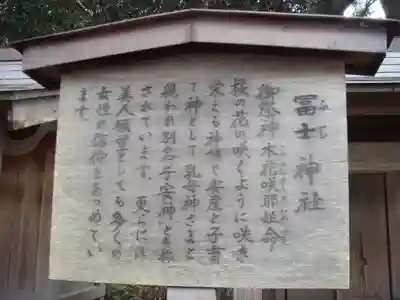 冨士神社
御祭神 木花咲耶姫命
桜の花の咲くように咲き
栄える神様で安産と子育
て神として乳母神さまと
親われ別名「子安神」とも称
されています。更らには
美人願望としても多くの
女性の信仰をあつめてい
ます。